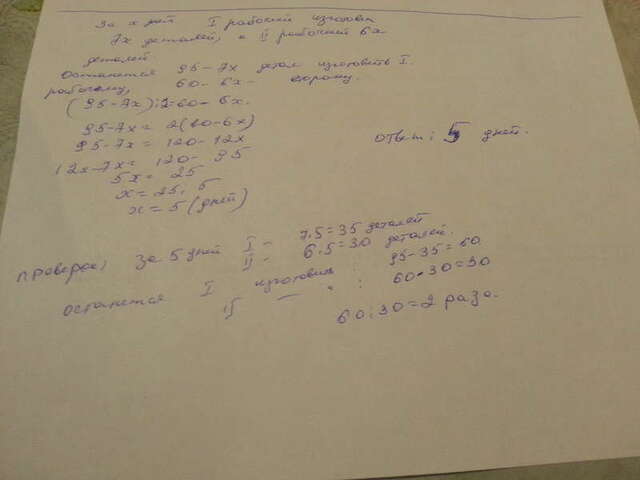 За x дней I рабочий изготовит
7x деталей, а II рабочий 6x
деталей
Останется 95-7x детал изготовить I
рабочему, 60-6x- второму.
(95-7x):2=60-6x.
95-7x= 2(60-6x)
95-7x= 120-12x
12x-7x= 120-95
5x= 25
x=25:5
x=5(дней)
Ответ: 5 дней.
проверка: За 5 дней I- 7.5=35 деталей
II- 6.5=30 деталей.
останется I изготовить : 95-35=60
II — " : 60-30=30
60:30=2 раза.